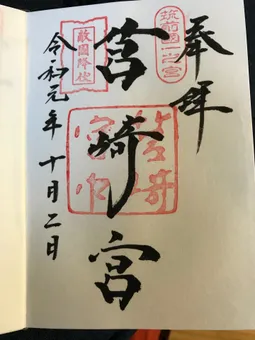 奉拝
筑前國一之宮
筥崎宮
筥崎宮印
敵國降伏
令和元年十月二日